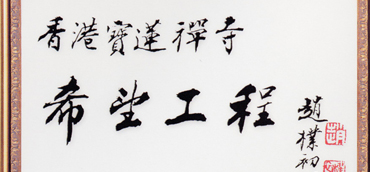 香港寶蓮禪寺
希望工程
趙樸初